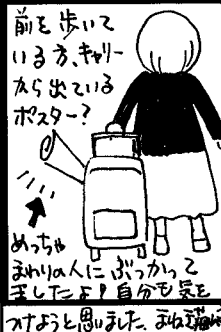 前を歩いて
いる方、キャリー
から出ている
ポスター?
めっちゃ
まわりの人にぶつかって
ましたよ!自分も気を
つけようと思いました。